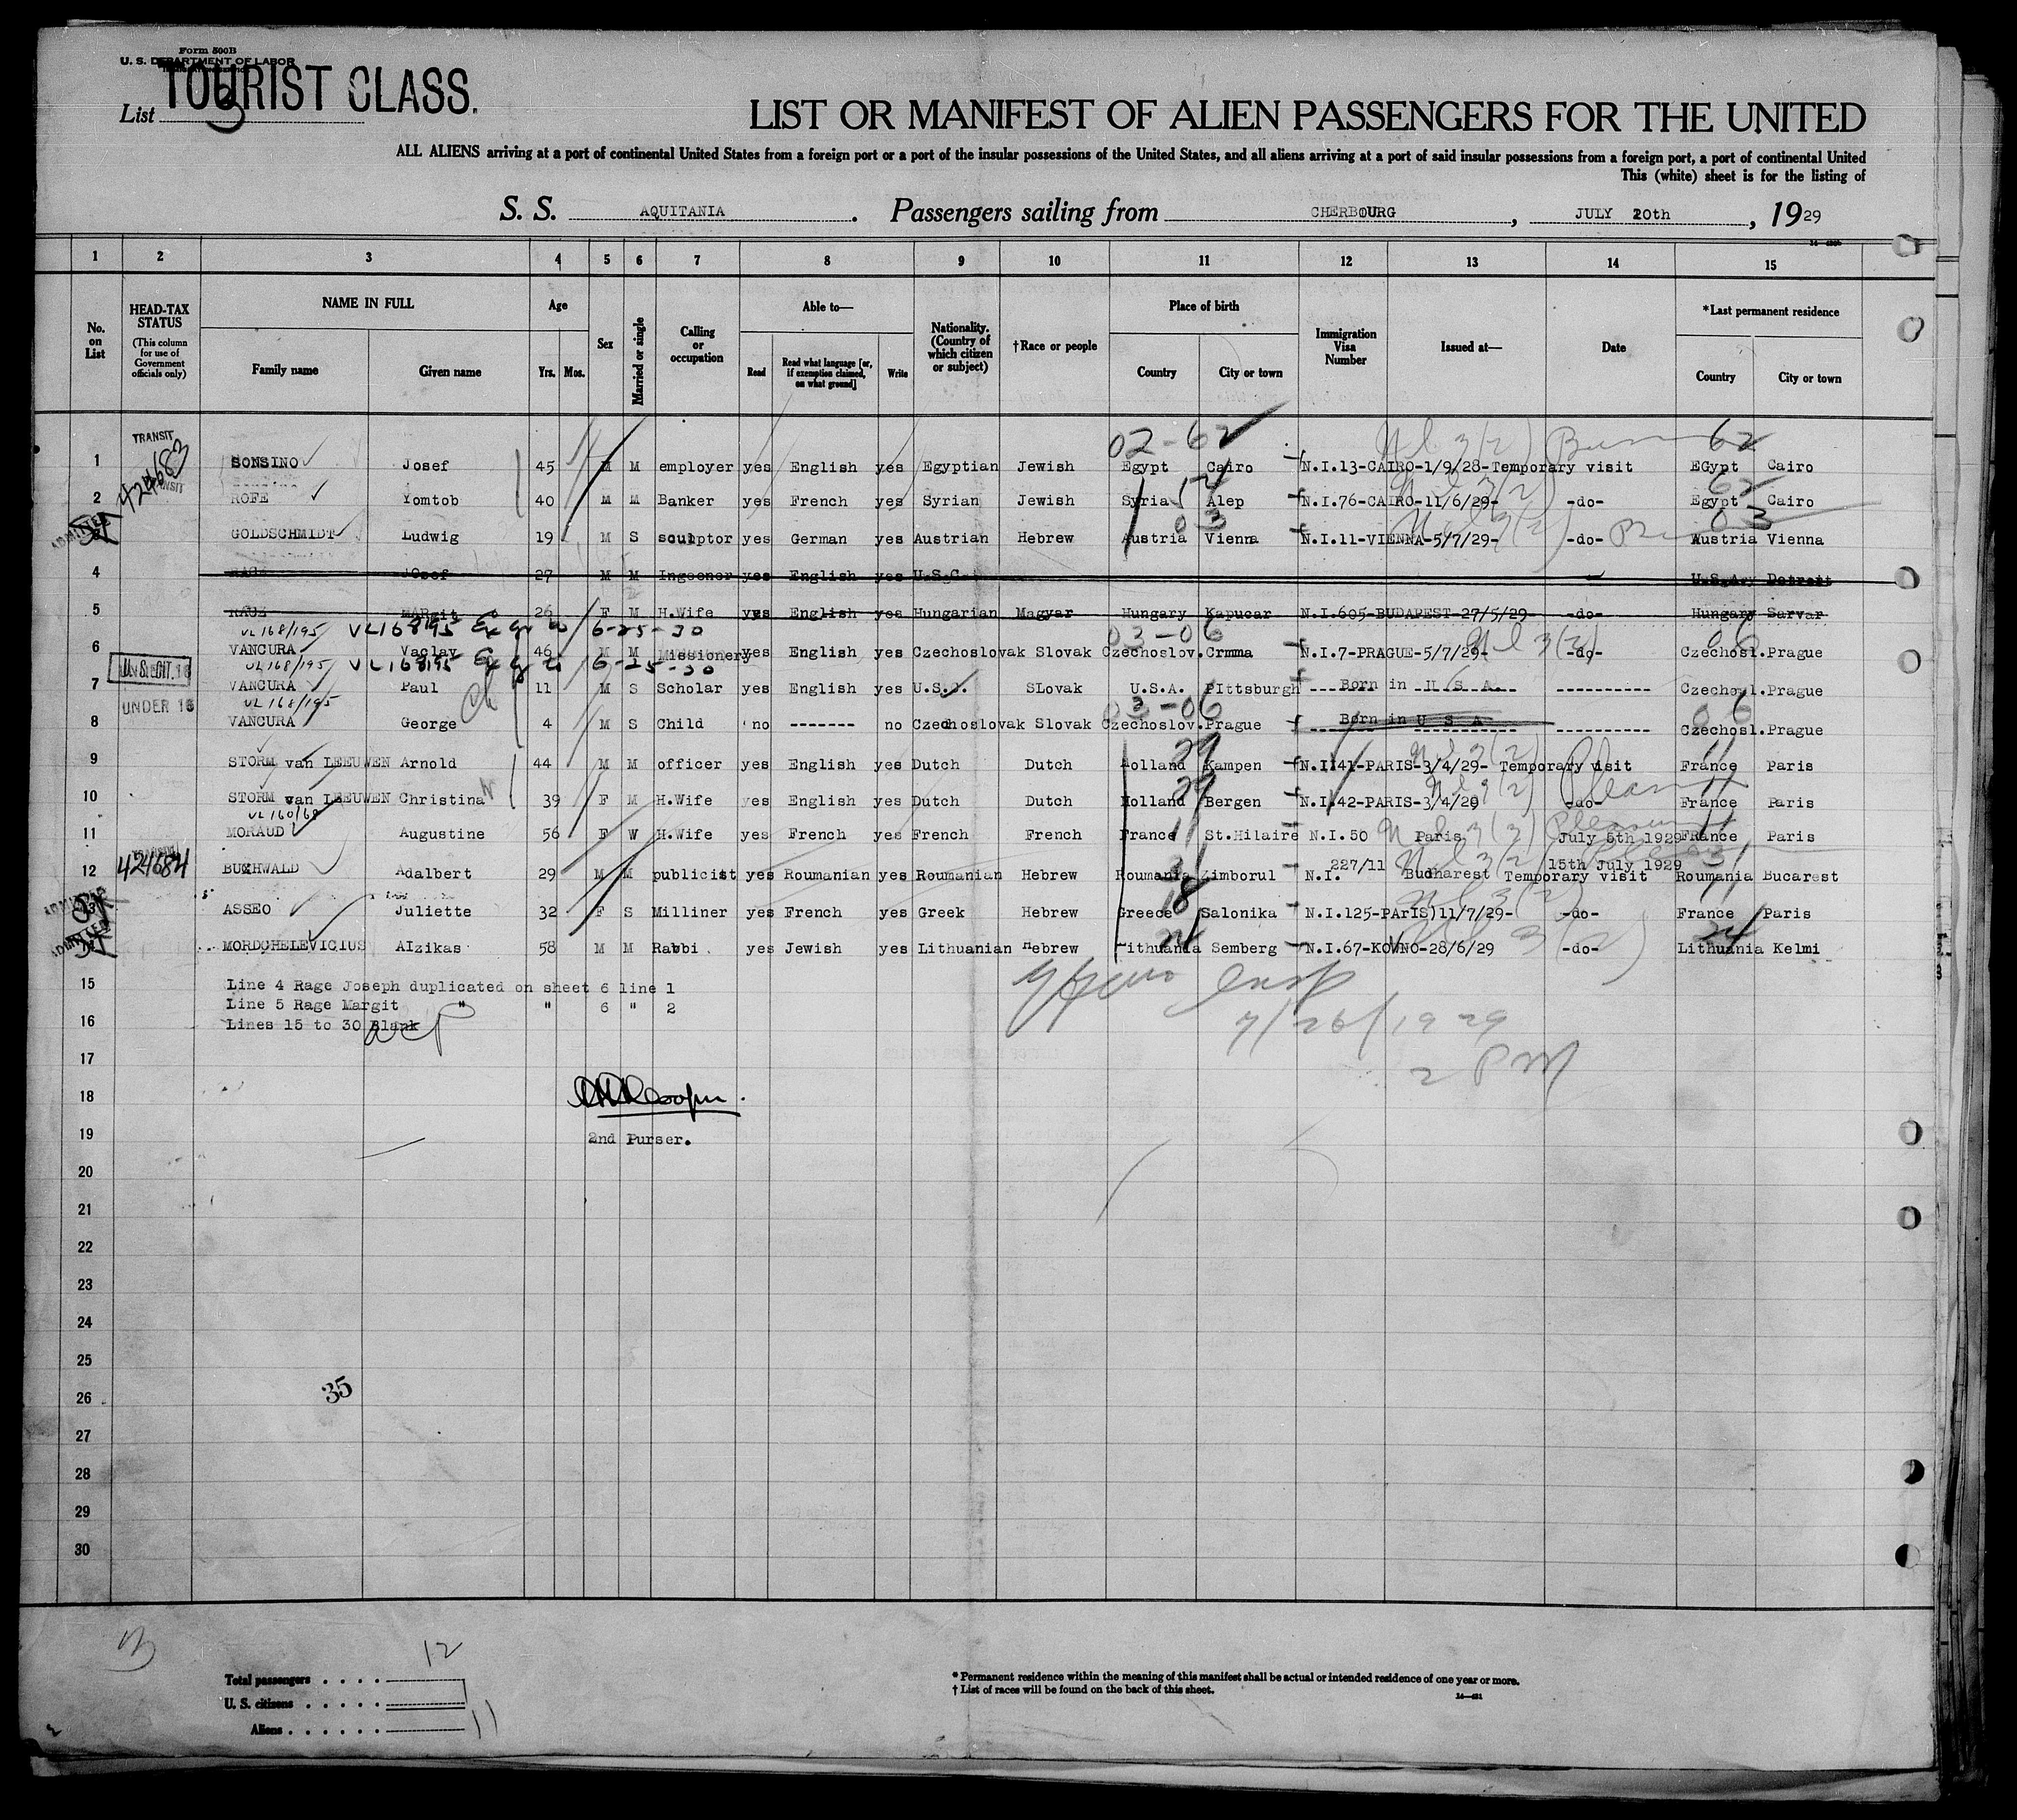 Form 500B
U. S. DEPARTMENT OF LABOR
TOURIST CLASS.
List 3
LIST OR MANIFEST OF ALIEN PASSENGERS FOR THE UNITED
ALL ALIENS arriving at a port of continental United States from a foreign port or a port of the insular possessions of the United States, and all aliens arriving at a port of said insular possessions from a foreign port, a port of continental United
This (white) sheet is for the listing of
S. S. AQUITANIA. Passengers sailing from CHERBOURG, JULY 20th, 1929
1 2 3 4 5 6 7 8 9 10 11 12 13 14 15
No. on List
HEAD-TAX STATUS (This column for use of Government officials only)
NAME IN FULL
Family name Given name
Age
Yrs. Mos.
Sex
Married or single
Calling or occupation
Able to—
Read Read what language [or, if exemption claimed, on what ground] Write
Nationality. (Country of which citizen or subject)
†Race or people
Place of birth
Country City or town
Immigration Visa Number
Issued at—
Date
*Last permanent residence
Country City or town
02-62 62
TRANSIT
424683
1 SONSINO Josef 45 M M employer yes English yes Egyptian Jewish Egypt Cairo N.I.13-CAIRO-1/9/28-Temporary visit EGypt Cairo
2 ROFE Yomtob 40 M M Banker yes French yes Syrian Jewish Syria Alep N.I.76-CAIRO-11/6/29- -do- Egypt Cairo
03 03
ADMITTED
3 GOLDSCHMIDT Ludwig 19 M S sculptor yes German yes Austrian Hebrew Austria Vienna N.I.11-VIENNA-5/7/29- -do- Austria Vienna
4 RAGE JOsef 27 M M Ingeener yes English yes U.S.C. U.S.A. Detroit
5 RAGE MARgit 26 F M H.Wife yes English yes Hungarian Magyar Hungary Kapucar N.I.605-BUDAPEST-27/5/29- -do- Hungary Sarvar
VL168/195 VL168195 6-25-30 03-06 06
6 VANCURA Vaclav 46 M M Missionery yes English yes Czechoslovak Slovak Czechoslov. Crmma N.I.7-PRAGUE-5/7/29- -do- Czechosl. Prague
VL168/195 VL168195 6-25-30
U.S. CIT. 18
7 VANCURA Paul 11 M S Scholar yes English yes U.S.A. SLovak U.S.A. PIttsburgh Born in U.S.A. ---------- Czechosl. Prague
VL168/195 03-06 06
UNDER 16
8 VANCURA George 4 M S Child no ------- no Czechoslovak Slovak Czechoslov. Prague Born in U S A ---------- Czechosl. Prague
29 11
9 STORM van LEEUWEN Arnold 44 M M officer yes English yes Dutch Dutch Holland Kampen N.I.41-PARIS-3/4/29- Temporary visit France Paris
29 11
10 STORM van LEEUWEN Christina 39 F M H.Wife yes English yes Dutch Dutch Holland Bergen N.I.42-PARIS-3/4/29 -do- France Paris
VL160/68
11 MORAUD Augustine 56 F W H.Wife yes French yes French French France St.Hilaire N.I.50 Paris July 5th 1929 France Paris
424684
12 BUCHWALD Adalbert 29 M M publicist yes Roumanian yes Roumanian Hebrew Roumania Zimborul N.I. 227/11 Budharest 15th July 1929 Temporary visit Roumania Bucarest
18 11
ADMITTED
13 ASSEO Juliette 32 F S Milliner yes French yes Greek Hebrew Greece Salonika N.I.125-PArIS)11/7/29- -do- France Paris
ADMITTED
14 MORDCHELEVICIUS AIzikas 58 M M Rabbi yes Jewish yes Lithuanian Hebrew Lithuania Semberg N.I.67-KOVNO-28/6/29 -do- Lithuania Kelmi
15 Line 4 Rage Joseph duplicated on sheet 6 line 1
Line 5 Rage Margit " " 6 " 2
16 Lines 15 to 30 Blank
7/26/1929
2 PM
17
18
19 2nd Purser.
20
21
22
23
24
25
26
35
27
28
29
30
Total passengers . . . . 12
U. S. citizens . . . . .
Aliens . . . . . . 11
* Permanent residence within the meaning of this manifest shall be actual or intended residence of one year or more.
† List of races will be found on the back of this sheet.